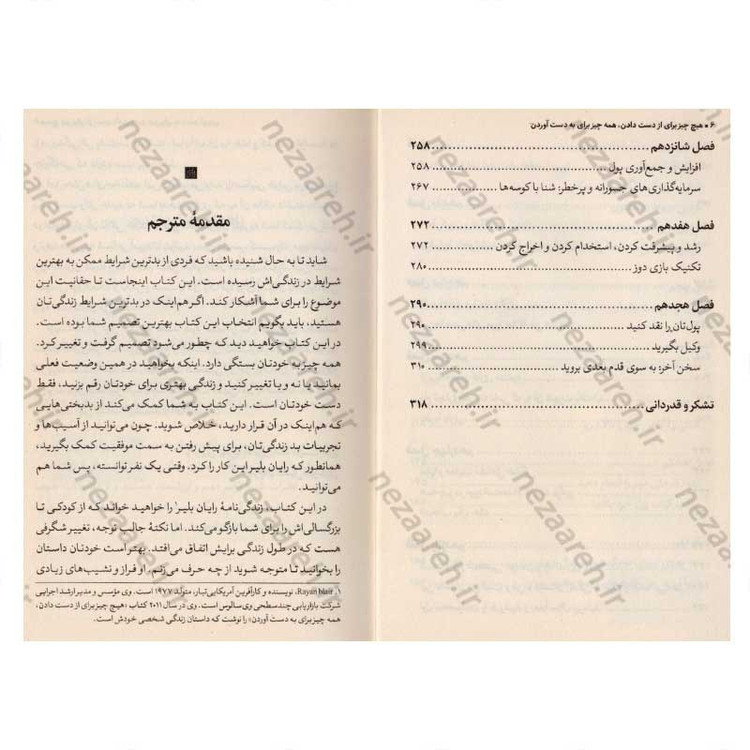 ۶ ▪ هیچ چیز برای از دست دادن، همه چیز برای به دست آوردن
فصل شانزدهم ........ ۲۵۸
افزایش و جمع‌آوری پول ........ ۲۵۸
سرمایه‌گذاری‌های جسورانه و پرخطر: شنا با کوسه‌ها ........ ۲۶۷
فصل هفدهم ........ ۲۷۲
رشد و پیشرفت کردن، استخدام کردن و اخراج کردن ........ ۲۷۲
تکنیک بازی دوز ........ ۲۸۰
فصل هجدهم ........ ۲۹۰
پول‌تان را نقد کنید ........ ۲۹۰
وکیل بگیرید ........ ۲۹۹
سخن آخر: به سوی قدم بعدی بروید ........ ۳۱۰
تشکر و قدردانی ........ ۳۱۸
مقدمهٔ مترجم
شاید تا به حال شنیده باشید که فردی از بدترین شرایط ممکن به بهترین
شرایط در زندگی‌اش رسیده است. این کتاب اینجاست تا حقانیت این
موضوع را برای شما آشکار کند. اگر هم‌اینک در بدترین شرایط زندگی‌تان
هستید، باید بگویم انتخاب این کتاب بهترین تصمیم شما بوده است.
در این کتاب خواهید دید که چطور می‌شود تصمیم گرفت و تغییر کرد.
همه چیز به خودتان بستگی دارد. اینکه بخواهید در همین وضعیت فعلی
بمانید یا نه و یا تغییر کنید و زندگی بهتری برای خودتان رقم بزنید، فقط
دست خودتان است. این کتاب به شما کمک می‌کند از بدبختی‌هایی
که هم‌اینک در آن قرار دارید، خلاص شوید. چون می‌توانید از آسیب‌ها و
تجربیات بد زندگی‌تان، برای پیش رفتن به سمت موفقیت کمک بگیرید،
همانطور که رایان بلیر این کار را کرد. وقتی یک نفر توانسته، پس شما هم
می‌توانید.
در این کتاب، زندگی‌نامهٔ رایان بلیر۱ را خواهید خواند که از کودکی تا
بزرگسالی‌اش را برای شما بازگو می‌کند. اما نکتهٔ جالب توجه، تغییر شگرفی
هست که در طول زندگی برایش اتفاق می‌افتد. بهتر است خودتان داستان
را بخوانید تا متوجه شوید از چه حرف می‌زنم. او فراز و نشیب‌های زیادی
۱. Rayan blair، نویسنده و کارآفرین آمریکایی‌تبار، متولد ۱۹۷۷ است. وی مؤسس و مدیر ارشد اجرایی
شرکت بازاریابی چندسطحی وی سالوس است. وی در سال ۲۰۱۱ کتاب «هیچ چیز برای از دست دادن،
همه چیز برای به دست آوردن» را نوشت که داستان زندگی شخصی خودش است.
nezaareh.ir